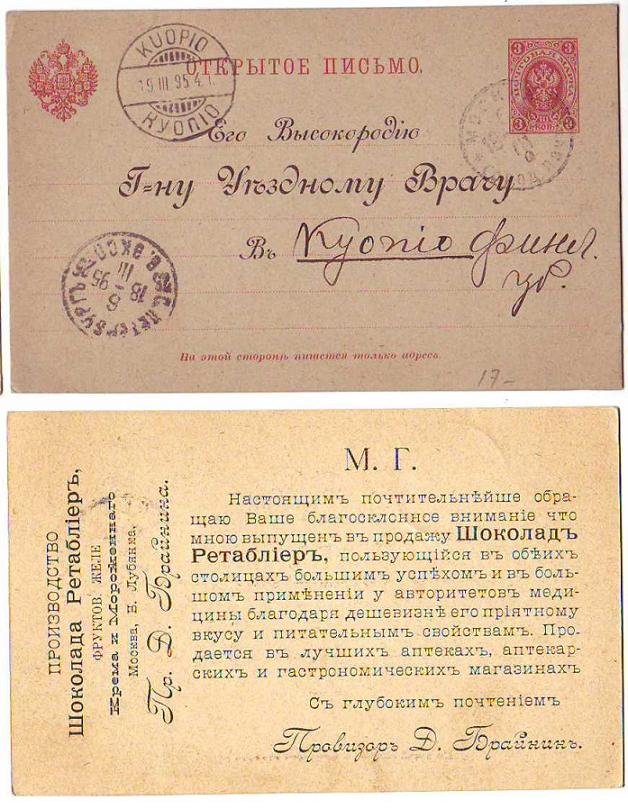 KUOPIO
19 III 95 4.
КУОПІО
ОТКРЫТОЕ ПИСЬМО.
3 3
ПОЧТОВАЯ МАРКА
3 КОП. 3
МОСК
Его Высокородію
Г=ну Уѣздному Врачу
Въ Куопіо финл.
гр.
С.ПЕТЕРБУРГЪ
18 III 95
На этой сторонѣ пишется только адресъ.
17-
ПРОИЗВОДСТВО
Шоколада Ретабліеръ,
ФРУКТОВ. ЖЕЛЕ
Крема и Мороженнаго
Москва, Б. Лубянка,
Пр. Д. Брайнина.
М. Г.
Настоящимъ почтительнѣйше обра-
щаю Ваше благосклонное вниманіе что
мною выпущенъ въ продажу Шоколадъ
Ретабліеръ, пользующійся въ обѣихъ
столицахъ большимъ успѣхомъ и въ боль-
шомъ примѣненіи у авторитетовъ меди-
цины благодаря дешевизнѣ его пріятному
вкусу и питательнымъ свойствамъ. Про-
дается въ лучшихъ аптекахъ, аптекар-
скихъ и гастрономическихъ магазинахъ
Съ глубокимъ почтеніемъ
Провизоръ Д. Брайнинъ.